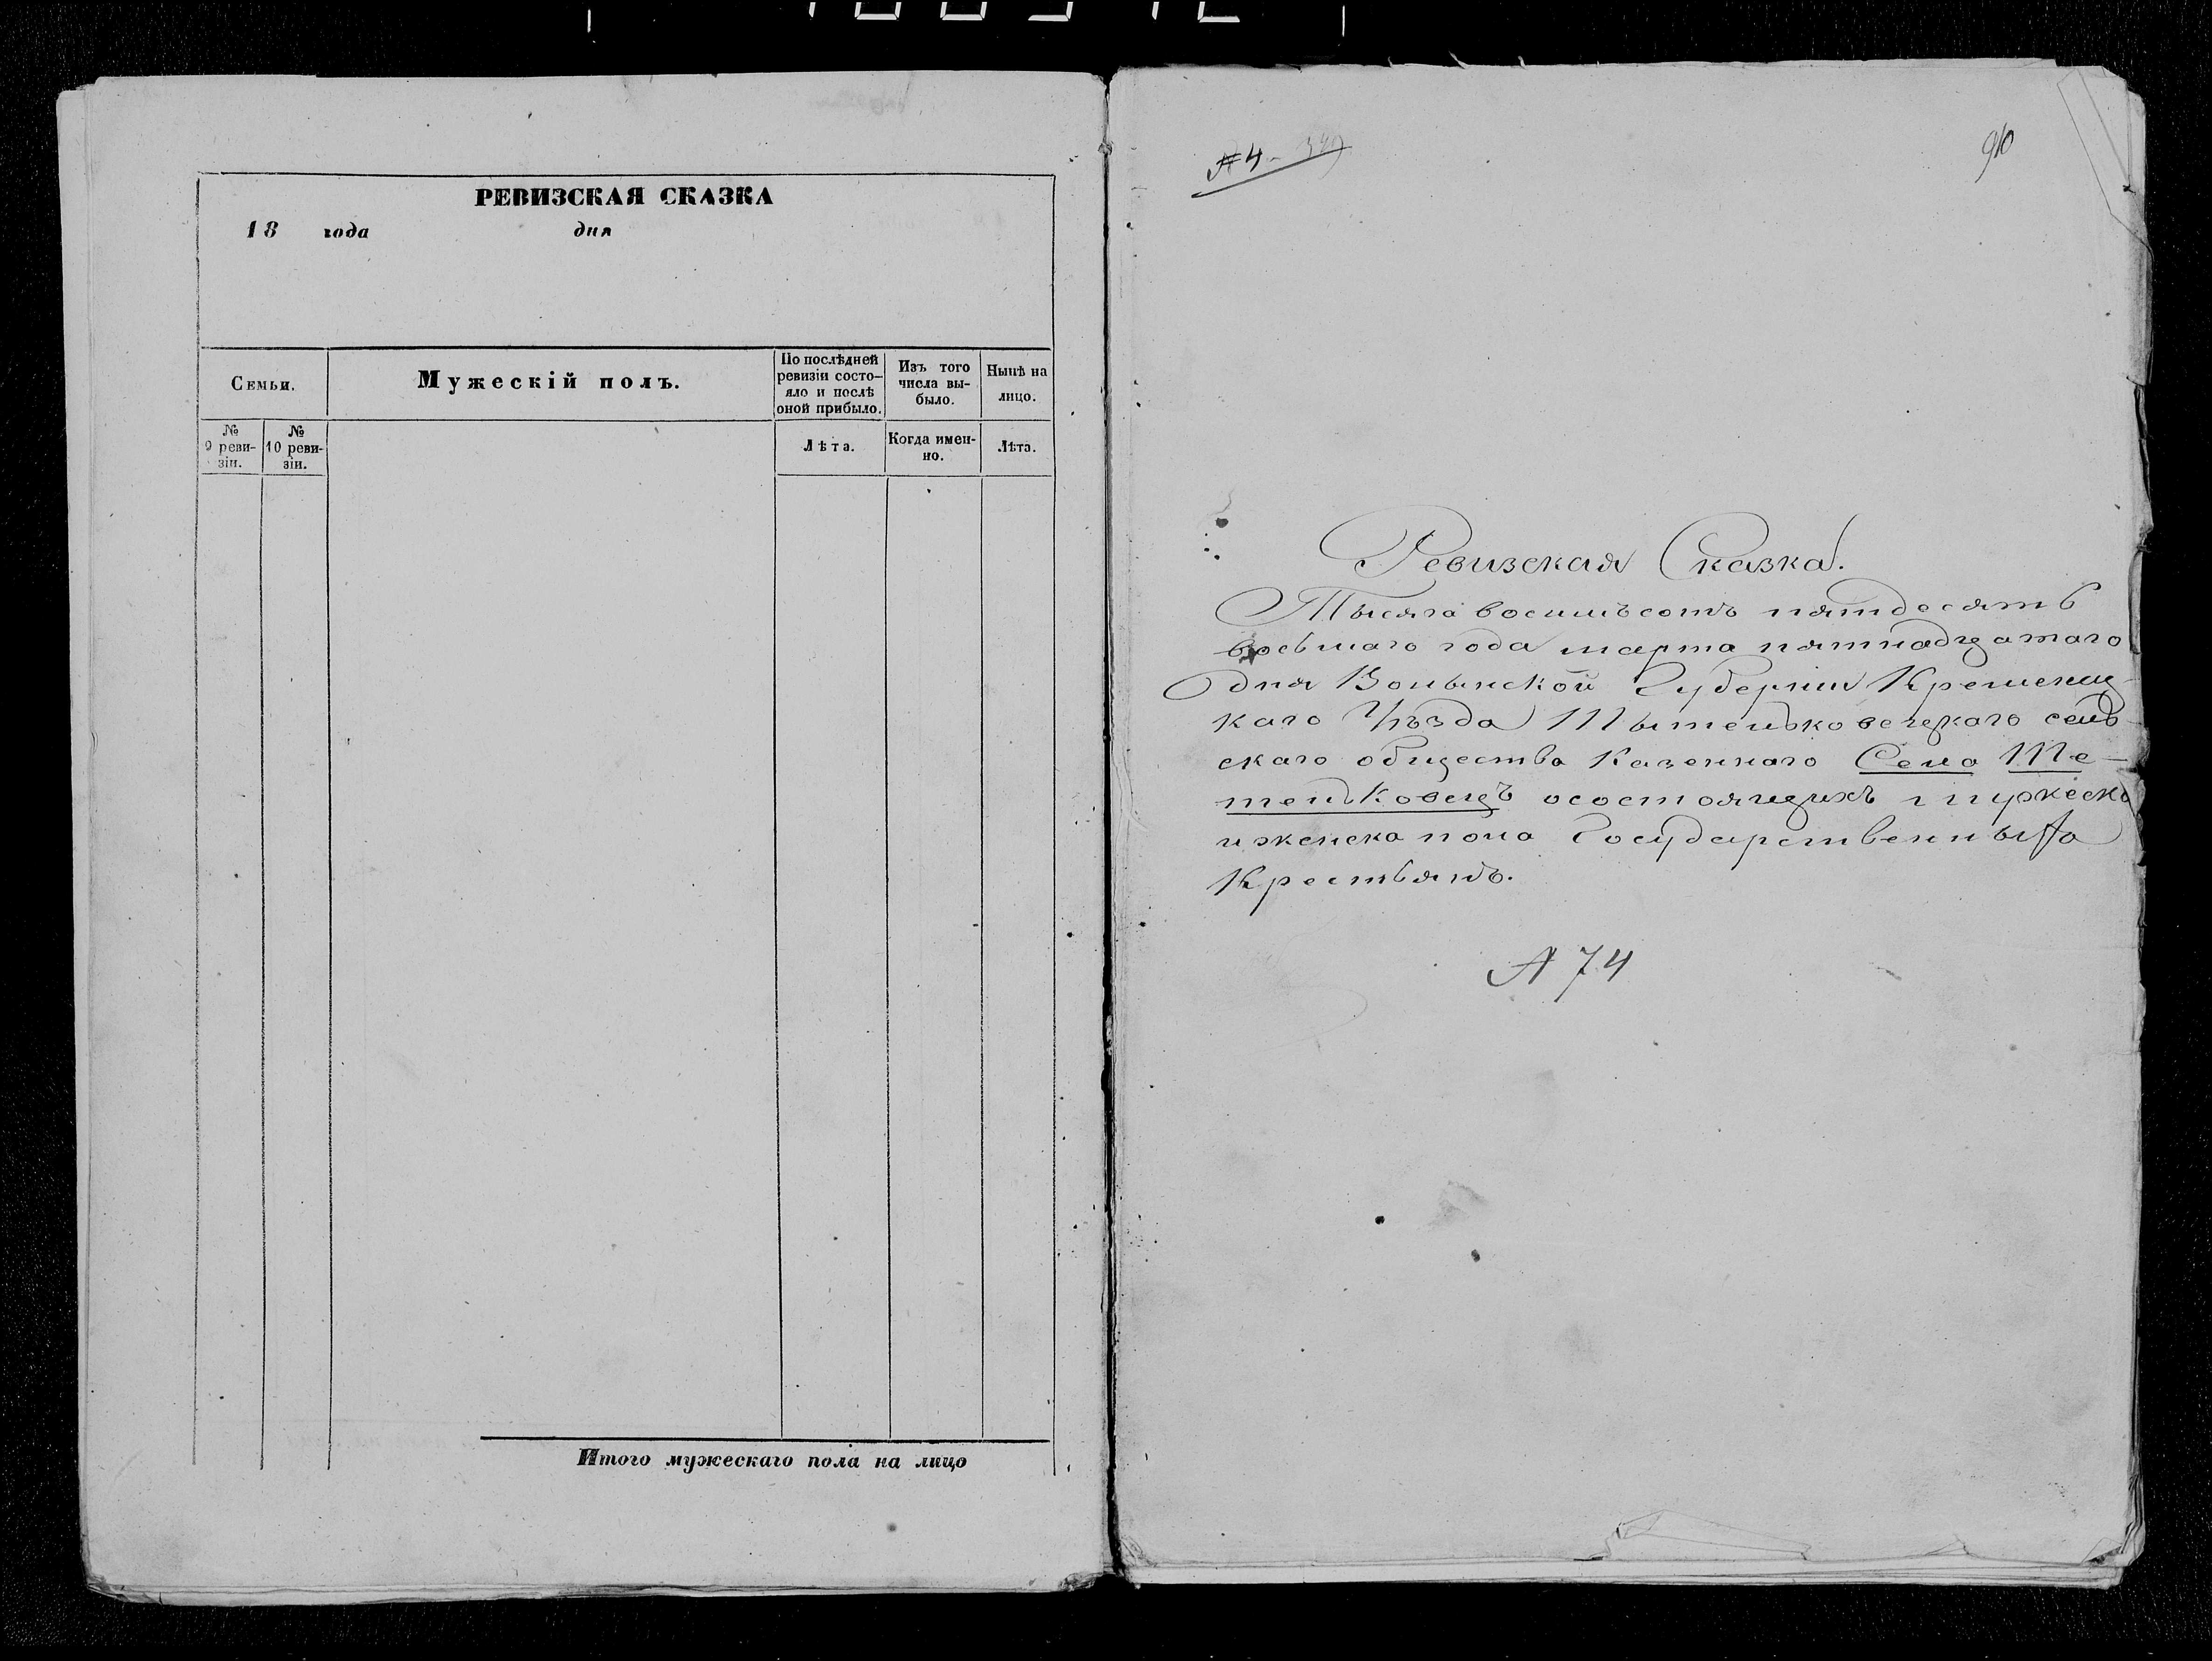 РЕВИЗСКАЯ СКАЗКА
18 года дня
Семьи.
Мужескій полъ.
По послѣдней
ревизіи состо-
яло и послѣ
оной прибыло.
Изъ того
числа вы-
было.
Нынѣ на
лицо.
№
9 реви-
зіи.
№
10 реви-
зіи.
Лѣта.
Когда имен-
но.
Лѣта.
Итого мужескаго пола на лицо
№ 4
910
Ревизская Сказка.
Тысяча восимъсотъ пятдесятъ
восьмаго года марта пятнадцатаго
дня Волынской Губерніи Кременец-
каго Уѣзда Тытельковецкаго сель-
скаго общества Казеннаго Села Те-
тельковецъ осостоящихъ мужеска
и женска пола Государственныхъ
Крестьянъ.
№ 74